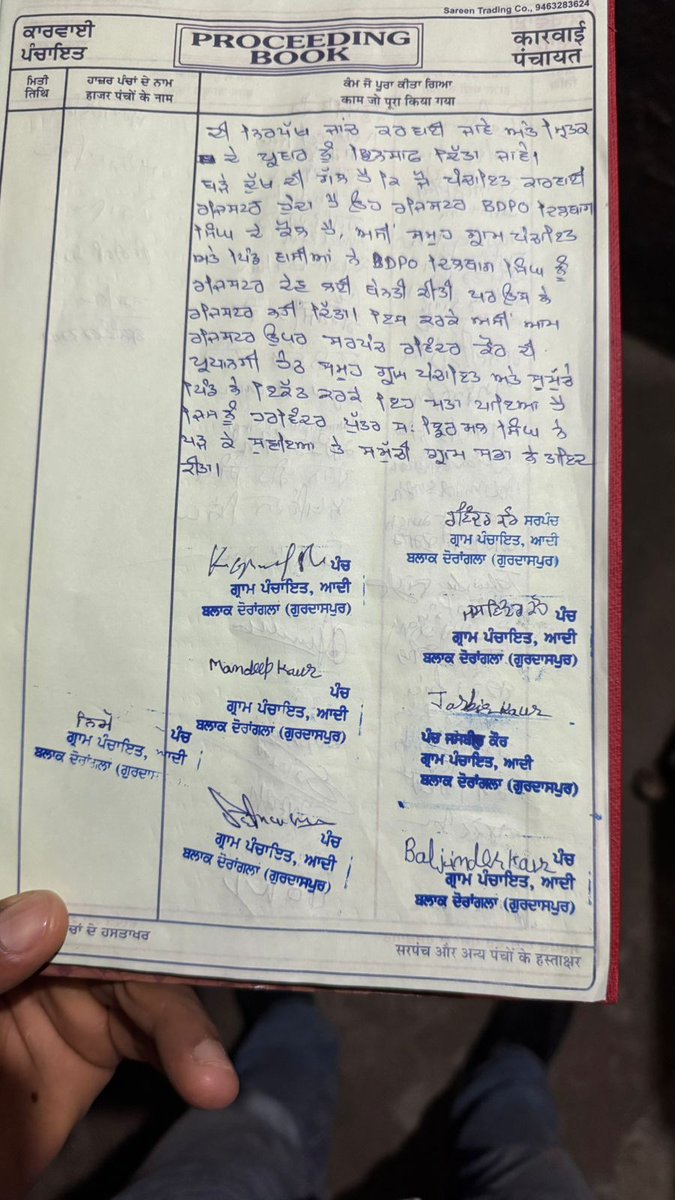 Sareen Trading Co., 9463283624
ਕਾਰਵਾਈ
ਪੰਚਾਇਤ
PROCEEDING
BOOK
कारवाई
पंचायत
ਮਿਤੀ
तिथि
ਹਾਜ਼ਰ ਪੰਚਾਂ ਦੇ ਨਾਮ
हाजर पंचों के नाम
ਕੰਮ ਜੋ ਪੂਰਾ ਕੀਤਾ ਗਿਆ
काम जो पूरा किया गया
ਦੀ ਨਿਰਪੱਖ ਜਾਂਚ ਕਰਵਾਈ ਜਾਵੇ ਅਤੇ ਮ੍ਰਿਤਕ
ਦੇ ਪ੍ਰਵਾਰ ਨੂੰ ਇਨਸਾਫ ਦਿੱਤਾ ਜਾਵੇ।
ਬੜੇ ਦੁੱਖ ਦੀ ਗੱਲ ਹੈ ਕਿ ਜੋ ਪੰਚਾਇਤ ਕਾਰਵਾਈ
ਰਜਿਸਟਰ ਹੁੰਦਾ ਹੈ ਉਹ ਰਜਿਸਟਰ BDPO ਦਿਲਬਾਗ
ਸਿੰਘ ਦੇ ਕੋਲ ਹੈ, ਅਸੀਂ ਸਮੂਹ ਗ੍ਰਾਮ ਪੰਚਾਇਤ
ਅਤੇ ਪਿੰਡ ਵਾਸੀਆਂ ਨੇ BDPO ਦਿਲਬਾਗ ਸਿੰਘ ਨੂੰ
ਰਜਿਸਟਰ ਦੇਣ ਲਈ ਬੇਨਤੀ ਕੀਤੀ ਪਰ ਉਸ ਨੇ
ਰਜਿਸਟਰ ਨਹੀਂ ਦਿੱਤਾ। ਇਸ ਕਰਕੇ ਅਸੀਂ ਆਮ
ਰਜਿਸਟਰ ਉਪਰ ਸਰਪੰਚ ਰਵਿੰਦਰ ਕੌਰ ਦੀ
ਪ੍ਰਧਾਨਗੀ ਹੇਠ ਸਮੂਹ ਗ੍ਰਾਮ ਪੰਚਾਇਤ ਅਤੇ ਸਮੁੱਚੇ
ਪਿੰਡ ਨੇ ਇਕੱਠ ਕਰਕੇ ਇਹ ਮਤਾ ਪਾਇਆ ਹੈ
ਜਿਸ ਨੂੰ ਹਰਵਿੰਦਰ ਪੁੱਤਰ ਸ: ਸਿੰਘ ਨੇ
ਪੜ੍ਹ ਕੇ ਸੁਣਾਇਆ ਤੇ ਸਮੁੱਚੀ ਗ੍ਰਾਮ ਸਭਾ ਨੇ ਤਾਇਦ
ਕੀਤਾ।
ਰਵਿੰਦਰ ਕੌਰ ਸਰਪੰਚ
ਗ੍ਰਾਮ ਪੰਚਾਇਤ, ਆਦੀ
ਬਲਾਕ ਦੋਰਾਂਗਲਾ (ਗੁਰਦਾਸਪੁਰ)
ਪੰਚ
ਗ੍ਰਾਮ ਪੰਚਾਇਤ, ਆਦੀ
ਬਲਾਕ ਦੋਰਾਂਗਲਾ (ਗੁਰਦਾਸਪੁਰ)
ਪੰਚ
ਗ੍ਰਾਮ ਪੰਚਾਇਤ, ਆਦੀ
ਬਲਾਕ ਦੋਰਾਂਗਲਾ (ਗੁਰਦਾਸਪੁਰ)
Mandeep Kaur
ਪੰਚ
ਗ੍ਰਾਮ ਪੰਚਾਇਤ, ਆਦੀ
ਬਲਾਕ ਦੋਰਾਂਗਲਾ (ਗੁਰਦਾਸਪੁਰ)
Jasbir Kaur
ਪੰਚ ਜਸਬੀਰ ਕੌਰ
ਗ੍ਰਾਮ ਪੰਚਾਇਤ, ਆਦੀ
ਬਲਾਕ ਦੋਰਾਂਗਲਾ (ਗੁਰਦਾਸਪੁਰ)
ਨਿਮੋ
ਪੰਚ
ਗ੍ਰਾਮ ਪੰਚਾਇਤ, ਆਦੀ
ਬਲਾਕ ਦੋਰਾਂਗਲਾ (ਗੁਰਦਾਸ
ਪੰਚ
ਗ੍ਰਾਮ ਪੰਚਾਇਤ, ਆਦੀ
ਬਲਾਕ ਦੋਰਾਂਗਲਾ (ਗੁਰਦਾਸਪੁਰ)
Baljinder Kaur ਪੰਚ
ਗ੍ਰਾਮ ਪੰਚਾਇਤ, ਆਦੀ
ਬਲਾਕ ਦੋਰਾਂਗਲਾ (ਗੁਰਦਾਸਪੁਰ)
ਚਾਂ ਦੇ ਹਸਤਾਖਰ
सरपंच और अन्य पंचों के हस्ताक्षर